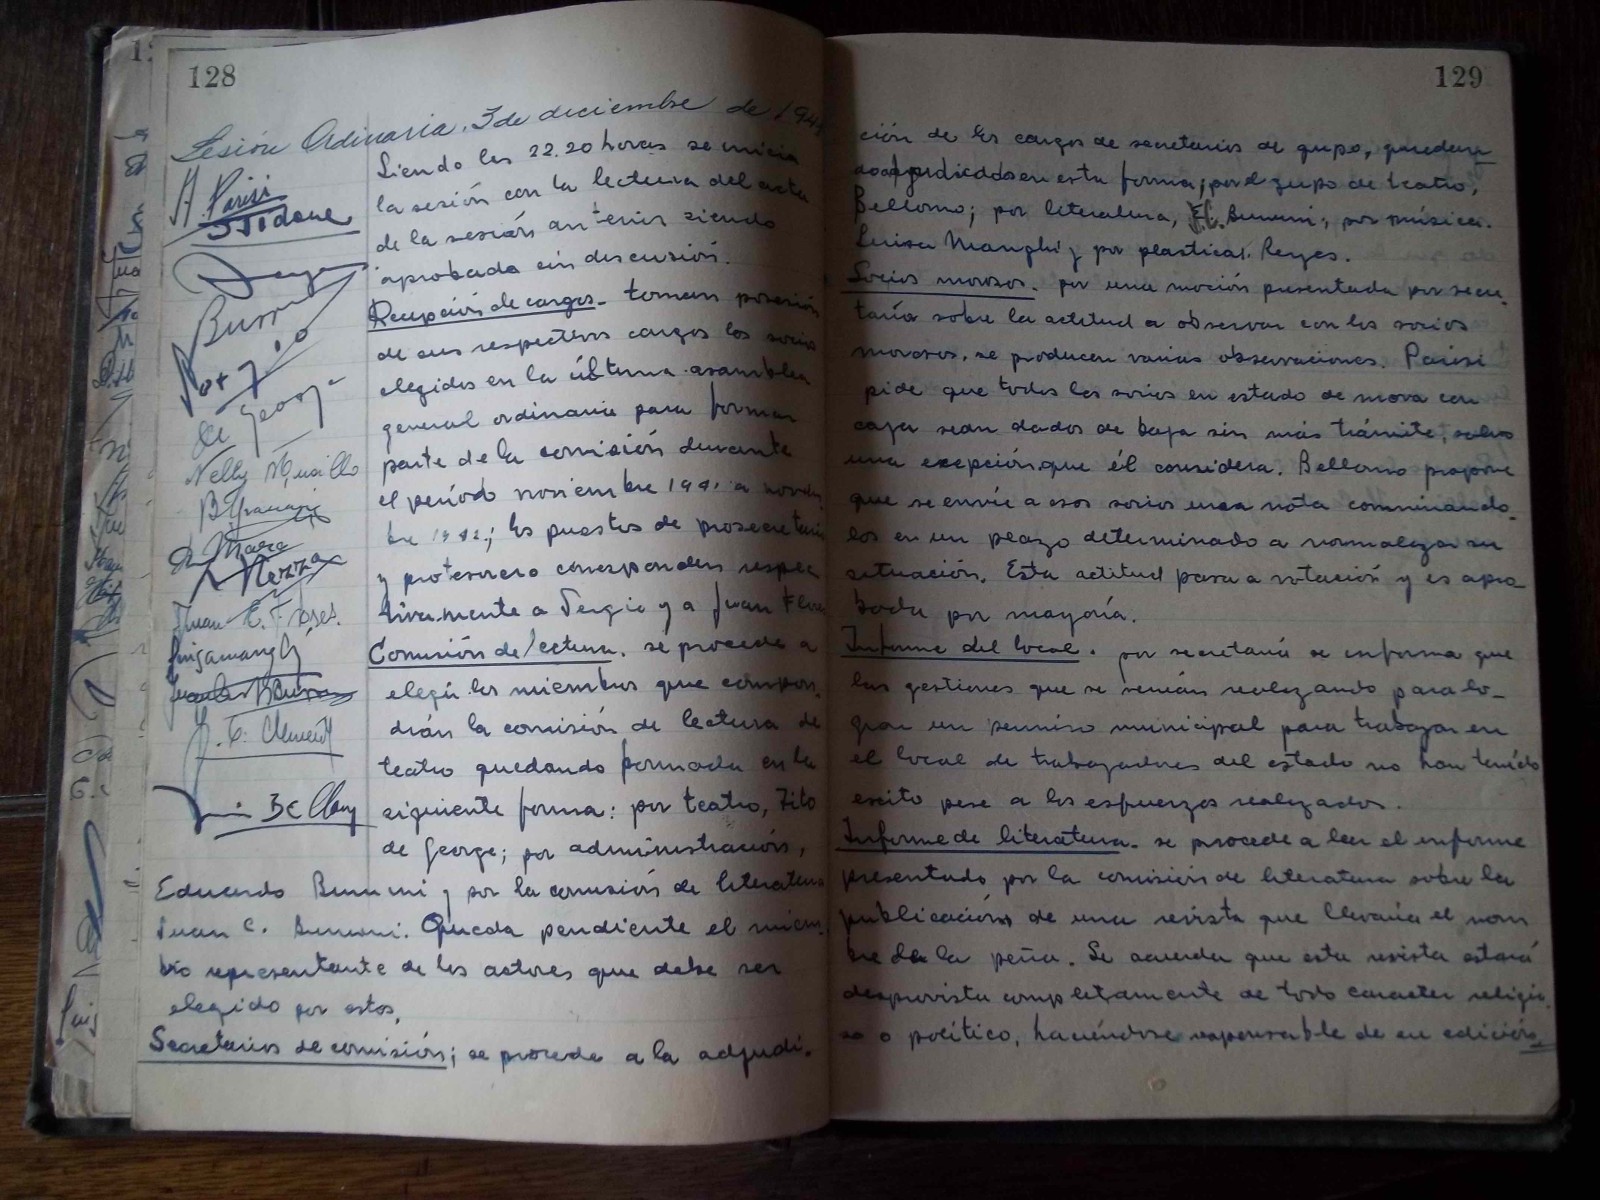 128
Sesión Ordinaria, 3 de diciembre de 194
A. Parisi
J Tidone
Burr
Sergio
de George
Nelly
Juan E. Flores.
Siendo las 22.20 horas se inicia
la sesión con la lectura del acta
de la sesión anterior siendo
aprobada sin discusión.
Recepción de cargos - toman posesión
de sus respectivos cargos los socios
elegidos en la última asamblea
general ordinaria para formar
parte de la comisión durante
el período noviembre 1941 a noviem
bre 1942; los puestos de prosecretario
y protesorero corresponden respec
tivamente a Sergio y a Juan Flores
Comisión de lectura. se procede a
elegir los miembros que compon
drán la comisión de lectura de
teatro quedando formada en la
siguiente forma: por teatro, Tito
de George; por administración,
Eduardo Bununi y por la comisión de literatura
Juan C. Bununi. Queda pendiente el miem
bro representante de los actores que debe ser
elegido por estos.
Secretarios de comisión; se procede a la adjudi-
129
ción de los cargos de secretarios de grupo, quedan
do adjudicados en esta forma; por el grupo de teatro,
Bellomo; por literatura, J.C. Bununi; por música.
Luisa Manghi y por plastica, Reyes.
Socios morosos. por una moción presentada por secre-
taría sobre la actitud a observar con los socios
morosos, se producen varias observaciones. Parisi
pide que todos los socios en estado de mora con
caja sean dados de baja sin más trámite, salvo
una excepción que él considera. Bellomo propone
que se envíe a esos socios una nota conminando-
los en un plazo determinado a normalizar su
situación. Esta actitud pasa a votación y es apro
bada por mayoría.
Informe del local. por secretaría se informa que
las gestiones que se venían realizando para lo-
grar un permiso municipal para trabajar en
el local de trabajadores del estado no han tenido
exito pese a los esfuerzos realizados.
Informe de literatura. se procede a leer el informe
presentado por la comisión de literatura sobre la
publicación de una revista que llevaría el nom
bre de la peña. Se acuerda que esta revista estará
desprovista completamente de todo caracter religio-
so o político, haciéndose responsable de su edición